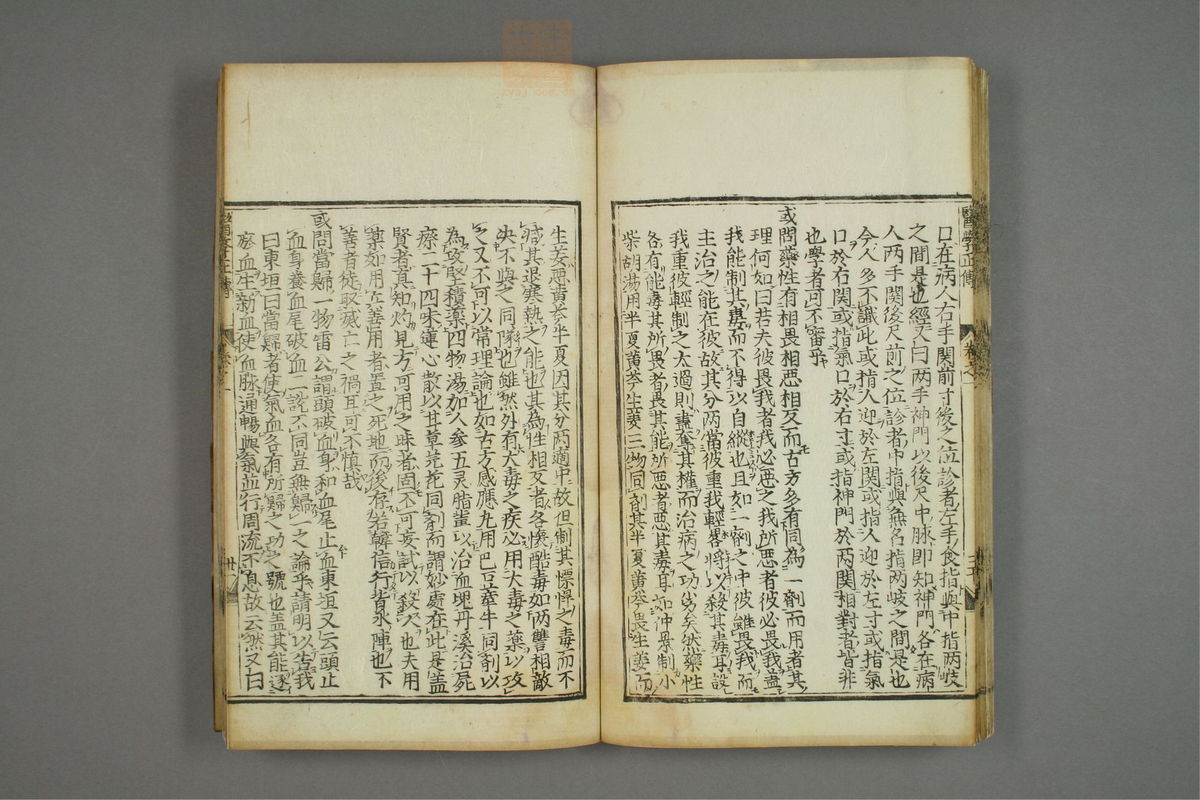 醫學正傳
卷之一
口在病人右手関前寸後之位診者左手食指與中指兩岐
之間是也經又曰兩手神門以後尺中脉即知神門各在病
人兩手関後尺前之位診者中指與無名指兩岐之間是也
今人多不識此或指人迎於左関或指人迎於左寸或指氣
口於右関或指氣口於右寸或指神門於兩関相對者皆非
也學者可不審乎
或問藥性有相畏相惡相反而古方多有同為一劑而用者其
理何如曰若夫彼畏我者我必惡之我所惡者彼必畏我盖
我能制其毒而不得以自縱也且如一劑之中彼雖畏我而
主治之能在彼故其分兩當彼重我輕畧將以殺其毒耳設
我重彼輕制之太過則盡奪其權而治病之功劣矣然藥性
各有能毒其所畏者畏其能所惡者惡其毒耳如仲景制小
柴胡湯用半夏黄芩生姜三物同劑其半夏黄芩畏生姜而
生姜惡黄芩半夏因其分兩適中故但制其慓悍之毒而不
減其退寒熱之能也其為性相反者各懷酷毒如兩讐相敵
決不與之同隊也雖然外有大毒之疾必用大毒之藥以攻
之又不可以常理論也如古方感應丸用巴豆牽牛同劑以
為攻堅積藥四物湯加人參五灵脂輩以治血塊丹溪治屍
瘵二十四味蓮心散以甘草芫花同劑而謂妙處在此是盖
賢者真知灼見方可用之昧者固不可妄試以殺人也夫用
藥如用兵善用者置之死地而後存若韓信行背水陣也不
善者徒取滅亡之禍耳可不慎哉
或問當歸一物雷公謂頭破血身和血尾止血東垣又云頭止
血身養血尾破血二說不同豈無歸一之論乎請明以告我
曰東垣曰當歸者使氣血各有所歸之功之號也盖其能逐
瘀血生新血使血脉通暢與氣並行周流不息故云然又曰
醫學正傳